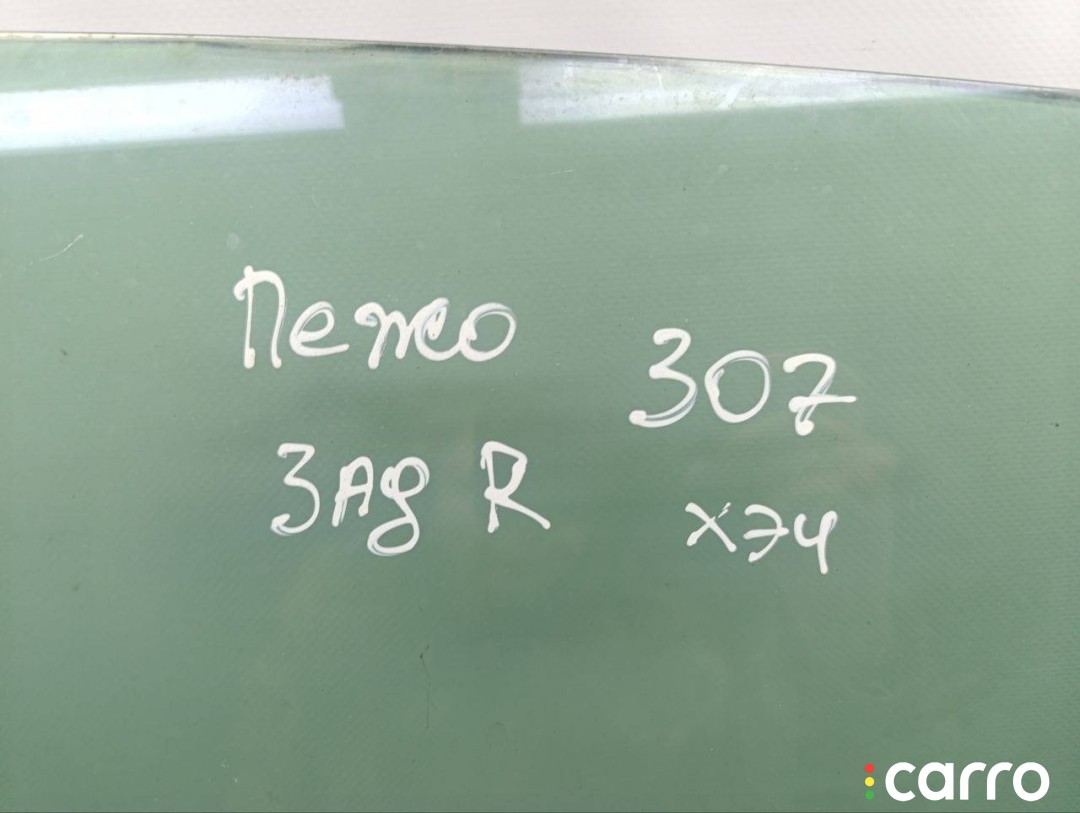 Пежо 307
ЗАд R хэч
carro